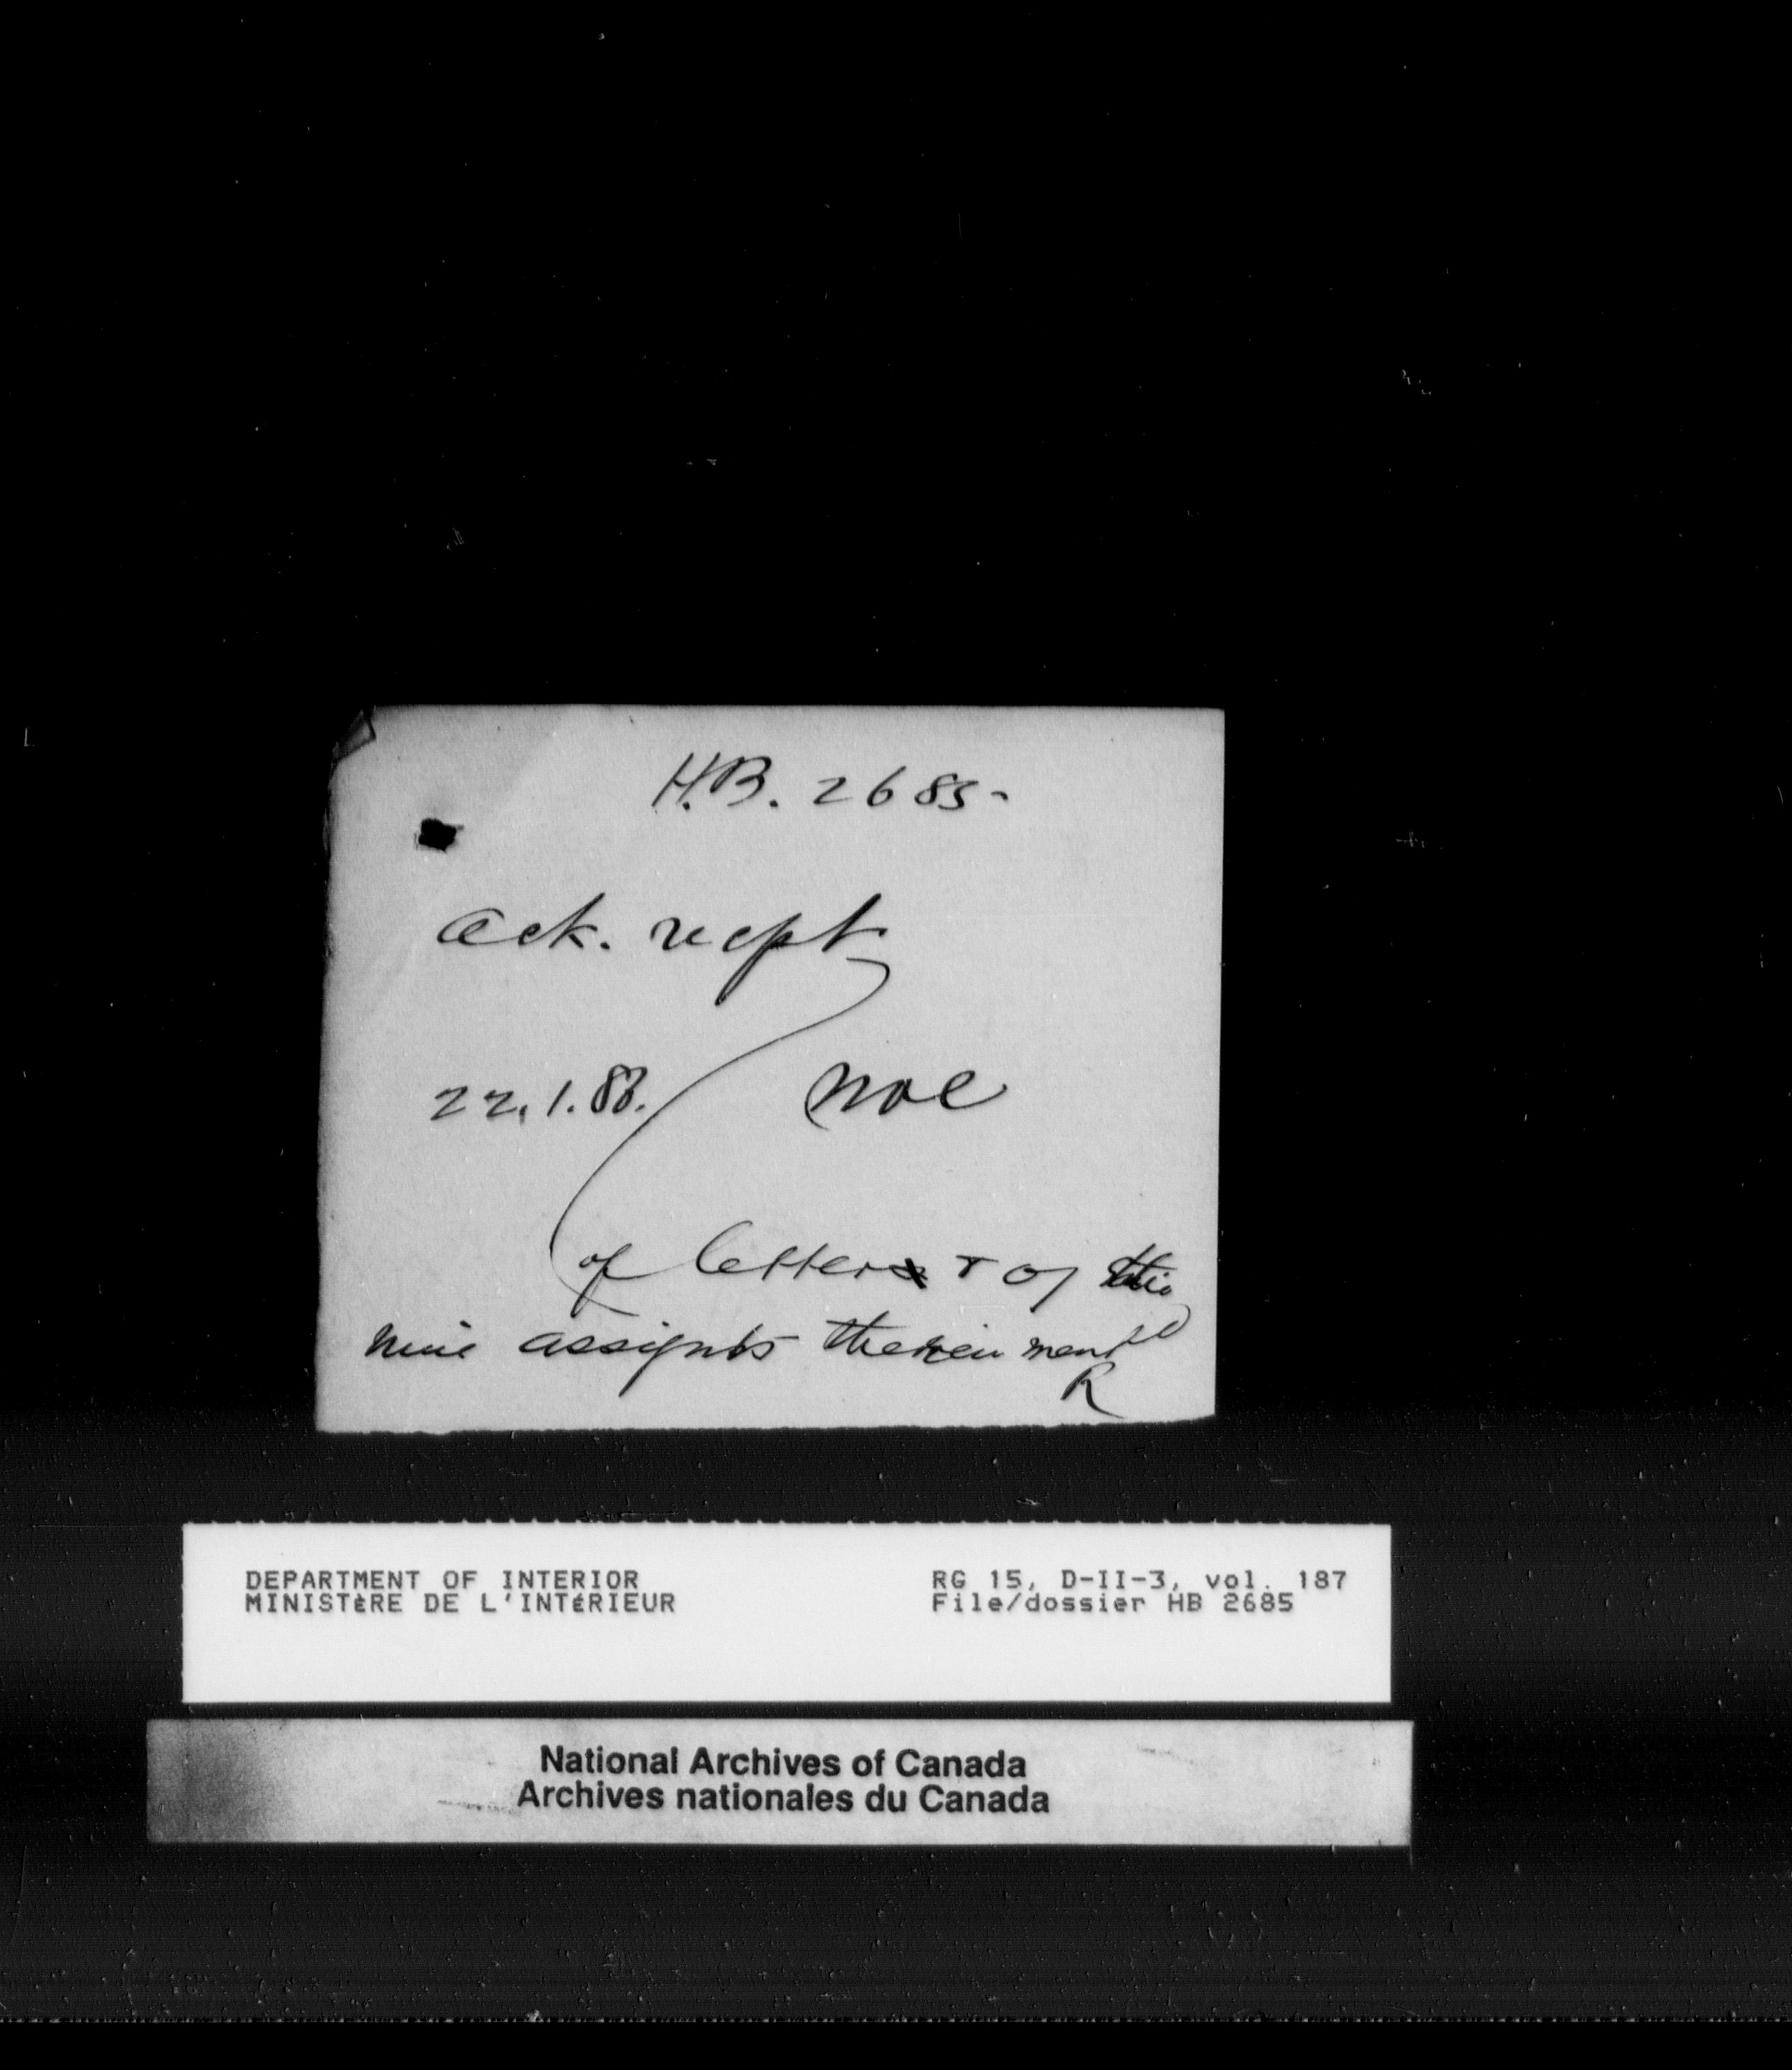 H.B. 2685-
ack. recpt
22.1.88.
of letter & of the
nine assignts therein mentd
R
DEPARTMENT OF INTERIOR
MINISTÈRE DE L'INTÉRIEUR
RG 15, D-II-3, vol. 187
File/dossier HB 2685
National Archives of Canada
Archives nationales du Canada